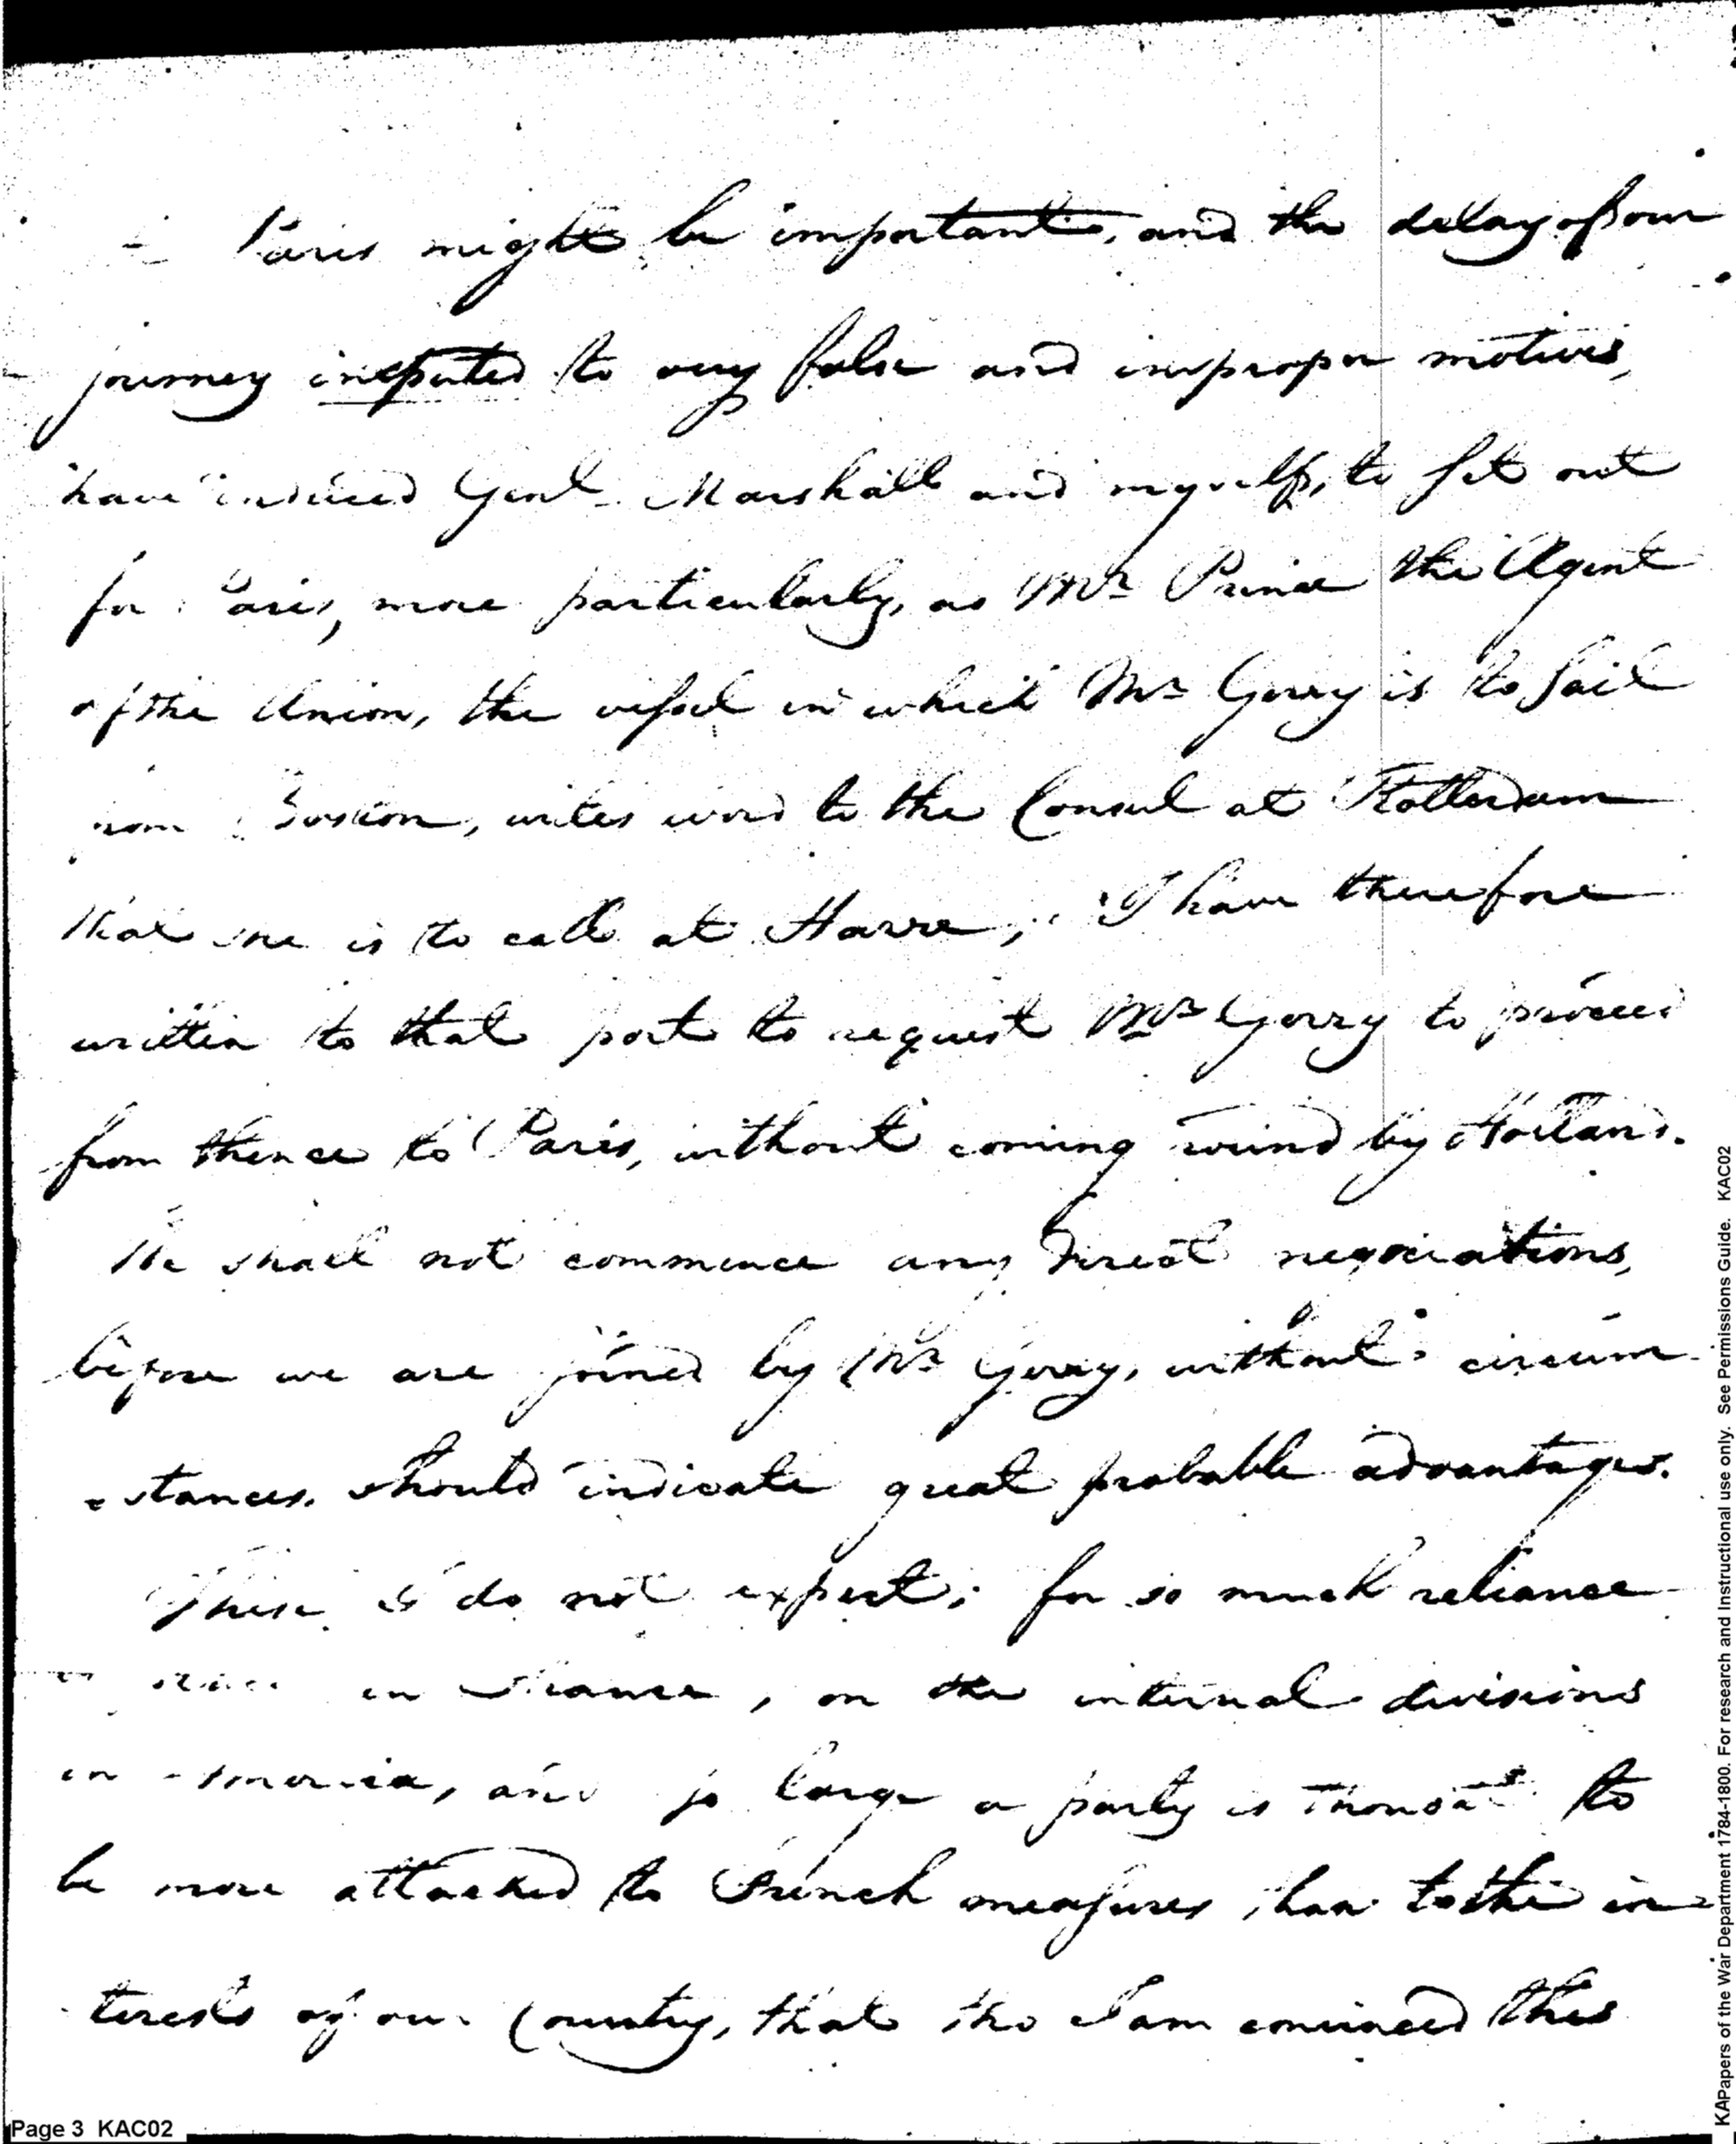 Paris might be important, and the delay of our
journey imputed to very false and improper motives,
have induced Genl. Marshall and myself, to set out
for Paris, more particularly, as Mr. Prince the Agent
of the Union, the vessel in which Mr. Gerry is to sail
from Boston, writes word to the Consul at Rotterdam
that she is to call at Havre; I have therefore
written to that port to request Mr. Gerry to proceed
from thence to Paris, without coming round by Holland.
We shall not commence any direct negociations,
before we are joined by Mr. Gerry, without circum-
stances should indicate great probable advantages.
These I do not expect; for so much reliance
in France, on the internal divisions
in America, and so large a party is thought to
be more attached to French measures than to the in-
terests of our Country, that tho I am convinced this
Page 3 KAC02
KAPapers of the War Department 1784-1800. For research and Instructional use only. See Permissions Guide. KAC02